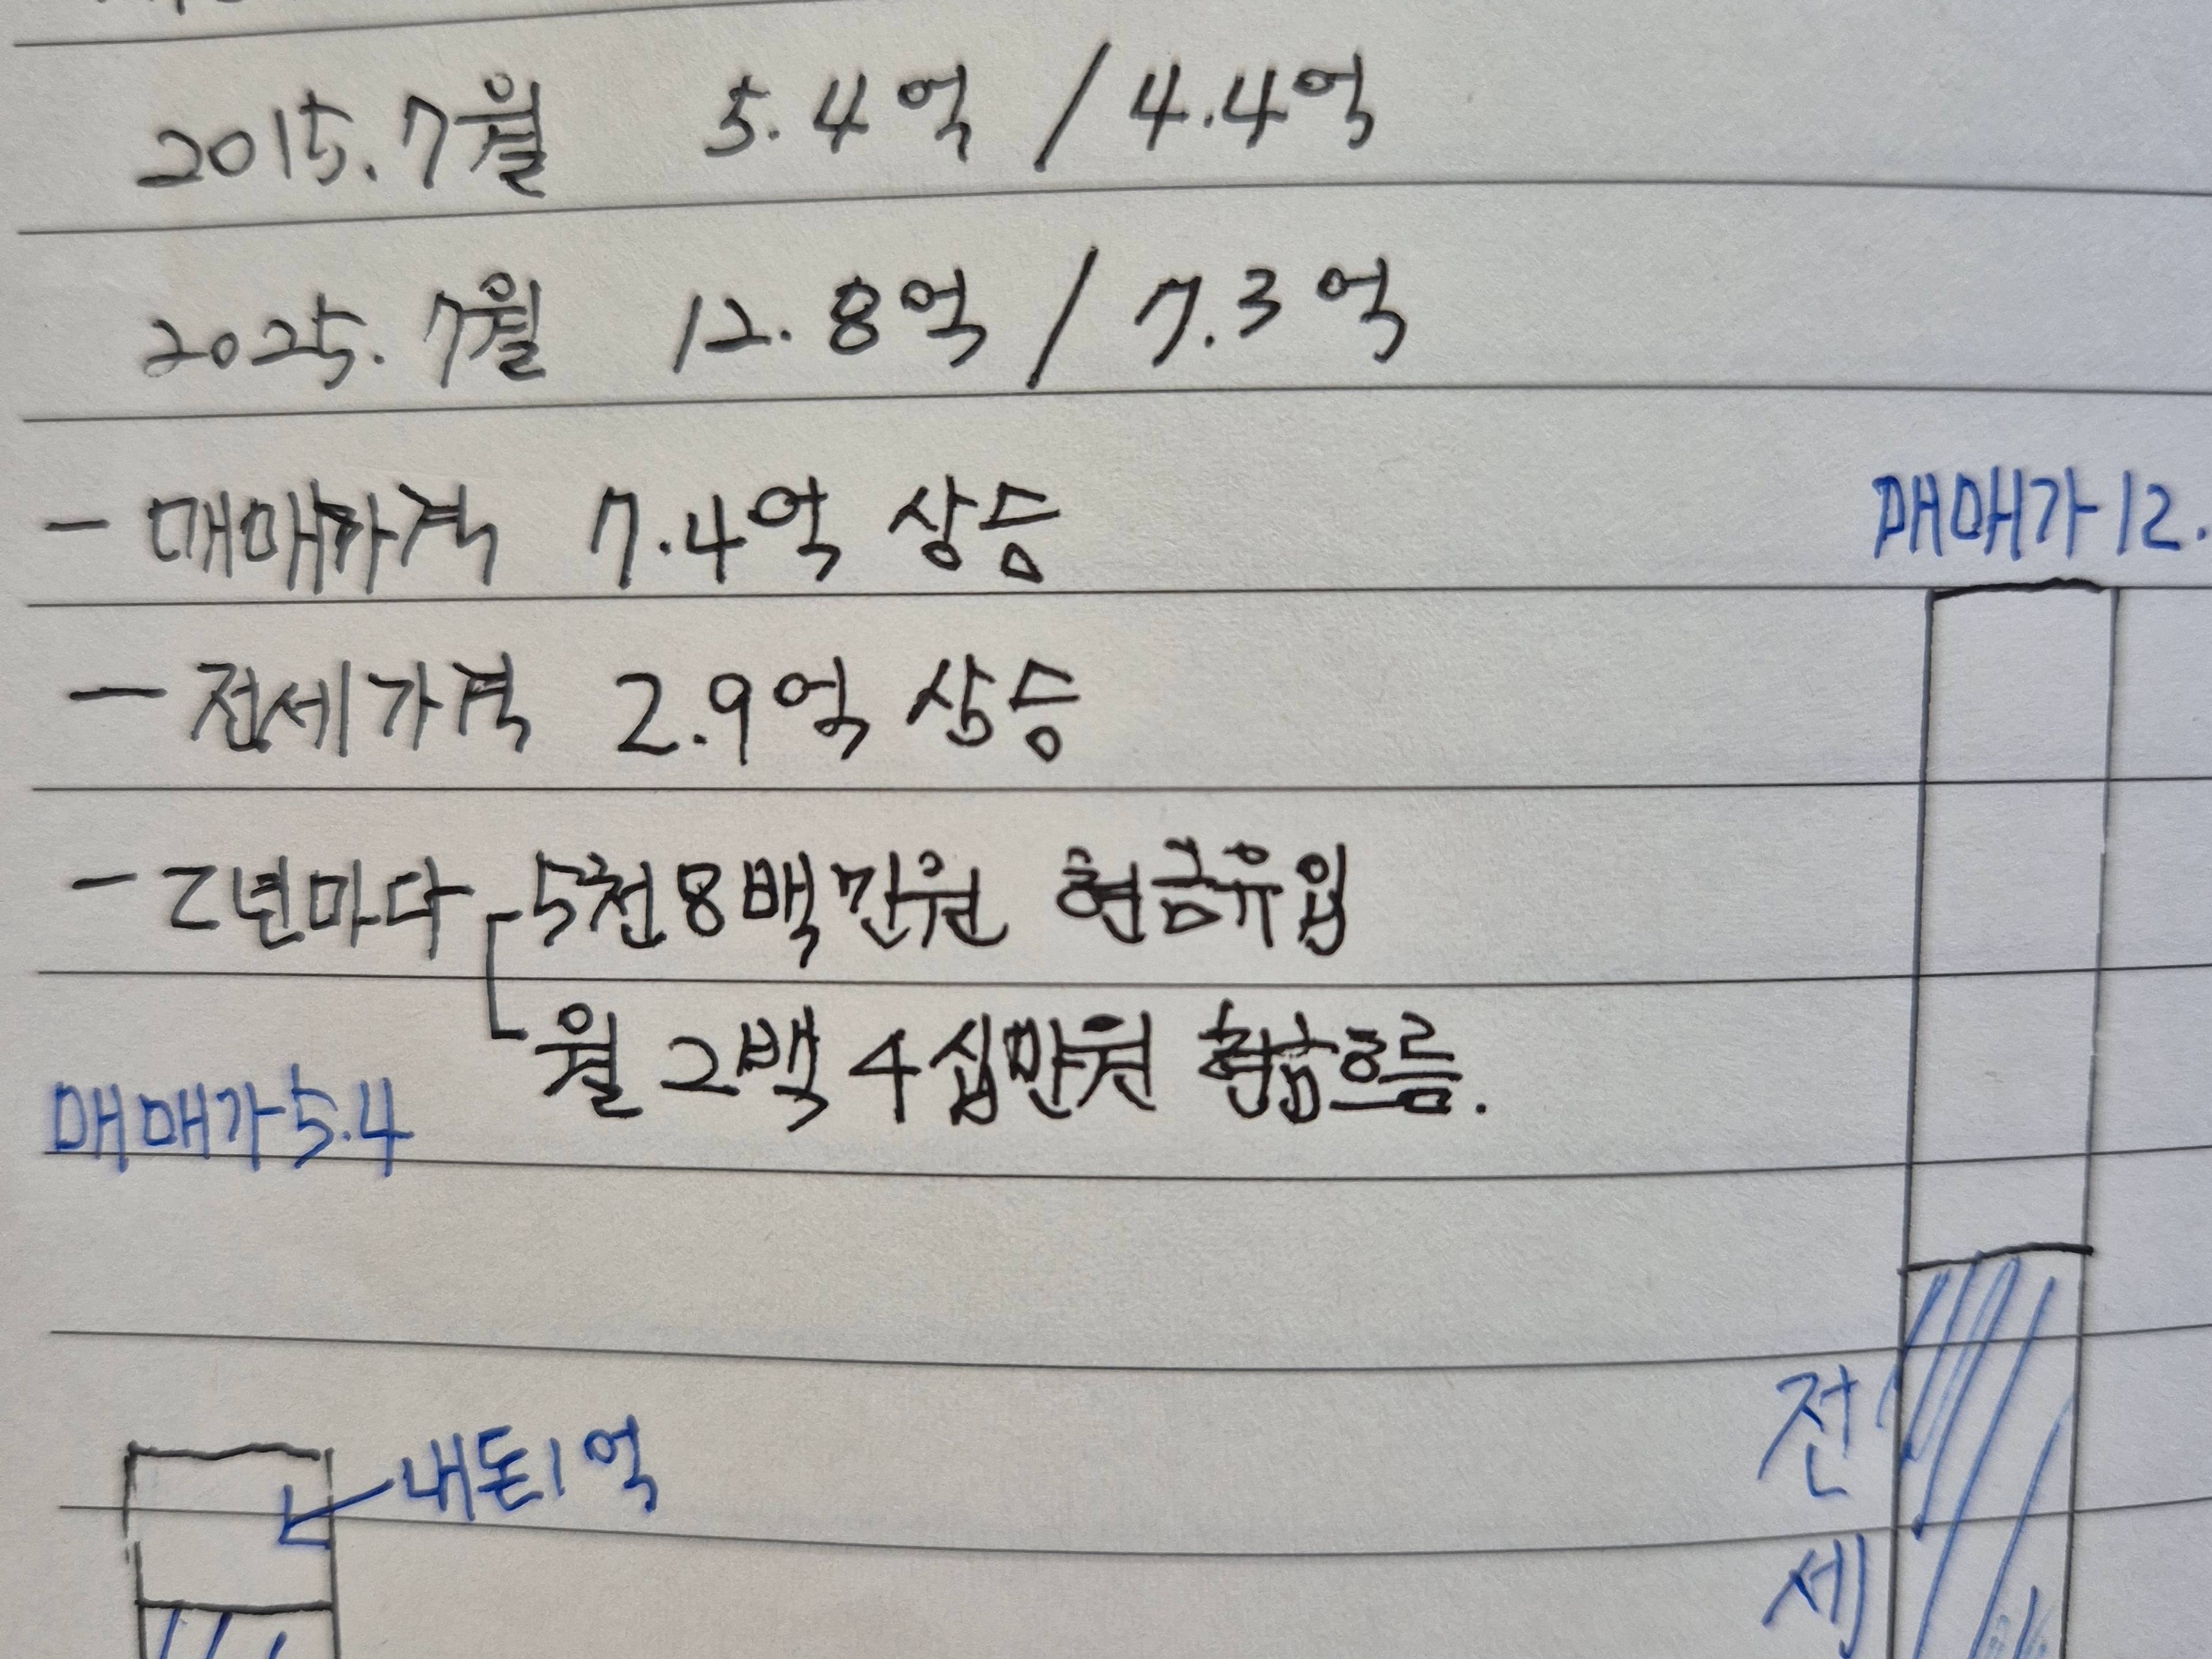 2015. 7월 5.4억 / 4.4억
2025. 7월 12.8억 / 7.3억
- 매매가격 7.4억 상승
매매가 12.
- 전세가격 2.9억 상승
- 2년마다 5천8백만원 현금유입
월 2백 4십만원 현금흐름.
매매가 5.4
내돈 1억
전
세